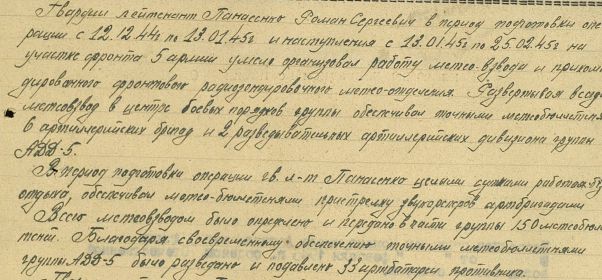 Гвардии лейтенант Панасенко Роман Сергеевич в период подготовки опе-
рации с 12.12.44г по 13.01.45г и наступления с 13.01.45г по 25.02.45г на
участке фронта 5 армии умело организовал работу метео-взвода и прикоман-
дированного фронтового радиозондировочного метео-отделения. Развертывая всегда
метеовзвод в центре боевых порядков группы обеспечивал точными метеобюллетенями
6 артиллерийских бригад и 2 разведывательных артиллерийских дивизиона группы
АДД-5.
В период подготовки операции гв. л-т Панасенко целыми сутками работая без
отдыха, обеспечивал метео-бюллетенями пристрелку двух реперов артбригадами
Всего метеовзводом было определено и передано в части группы 150 метеобюлле-
теней. Благодаря своевременному обеспечению точными метеобюллетенями
группы АДД-5 было разведано и подавлено 33 артбатареи противника.